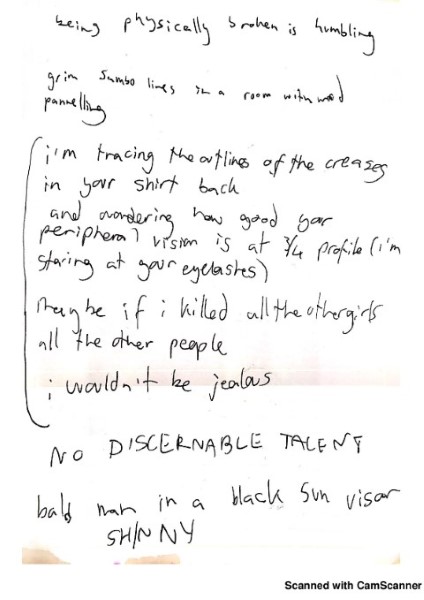 being physically broken is humbling
grim Sumbo lines in a room with wood
pannelling
i'm tracing the outlines of the creases
in your shirt back
and wondering how good your
peripheral vision is at 3/4 profile (i'm
staring at your eyelashes)
maybe if i killed all the other girls
all the other people
i wouldn't be jealous
NO DISCERNABLE TALENT
bald man in a black sun visor
SHINNY
Scanned with CamScanner